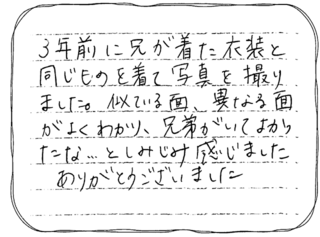 3年前に兄が着た衣装と
同じものを着て写真を撮り
ました。似ている面、異なる面
がよくわかり、兄弟がいてよかっ
たな…としみじみ感じました
ありがとうございました